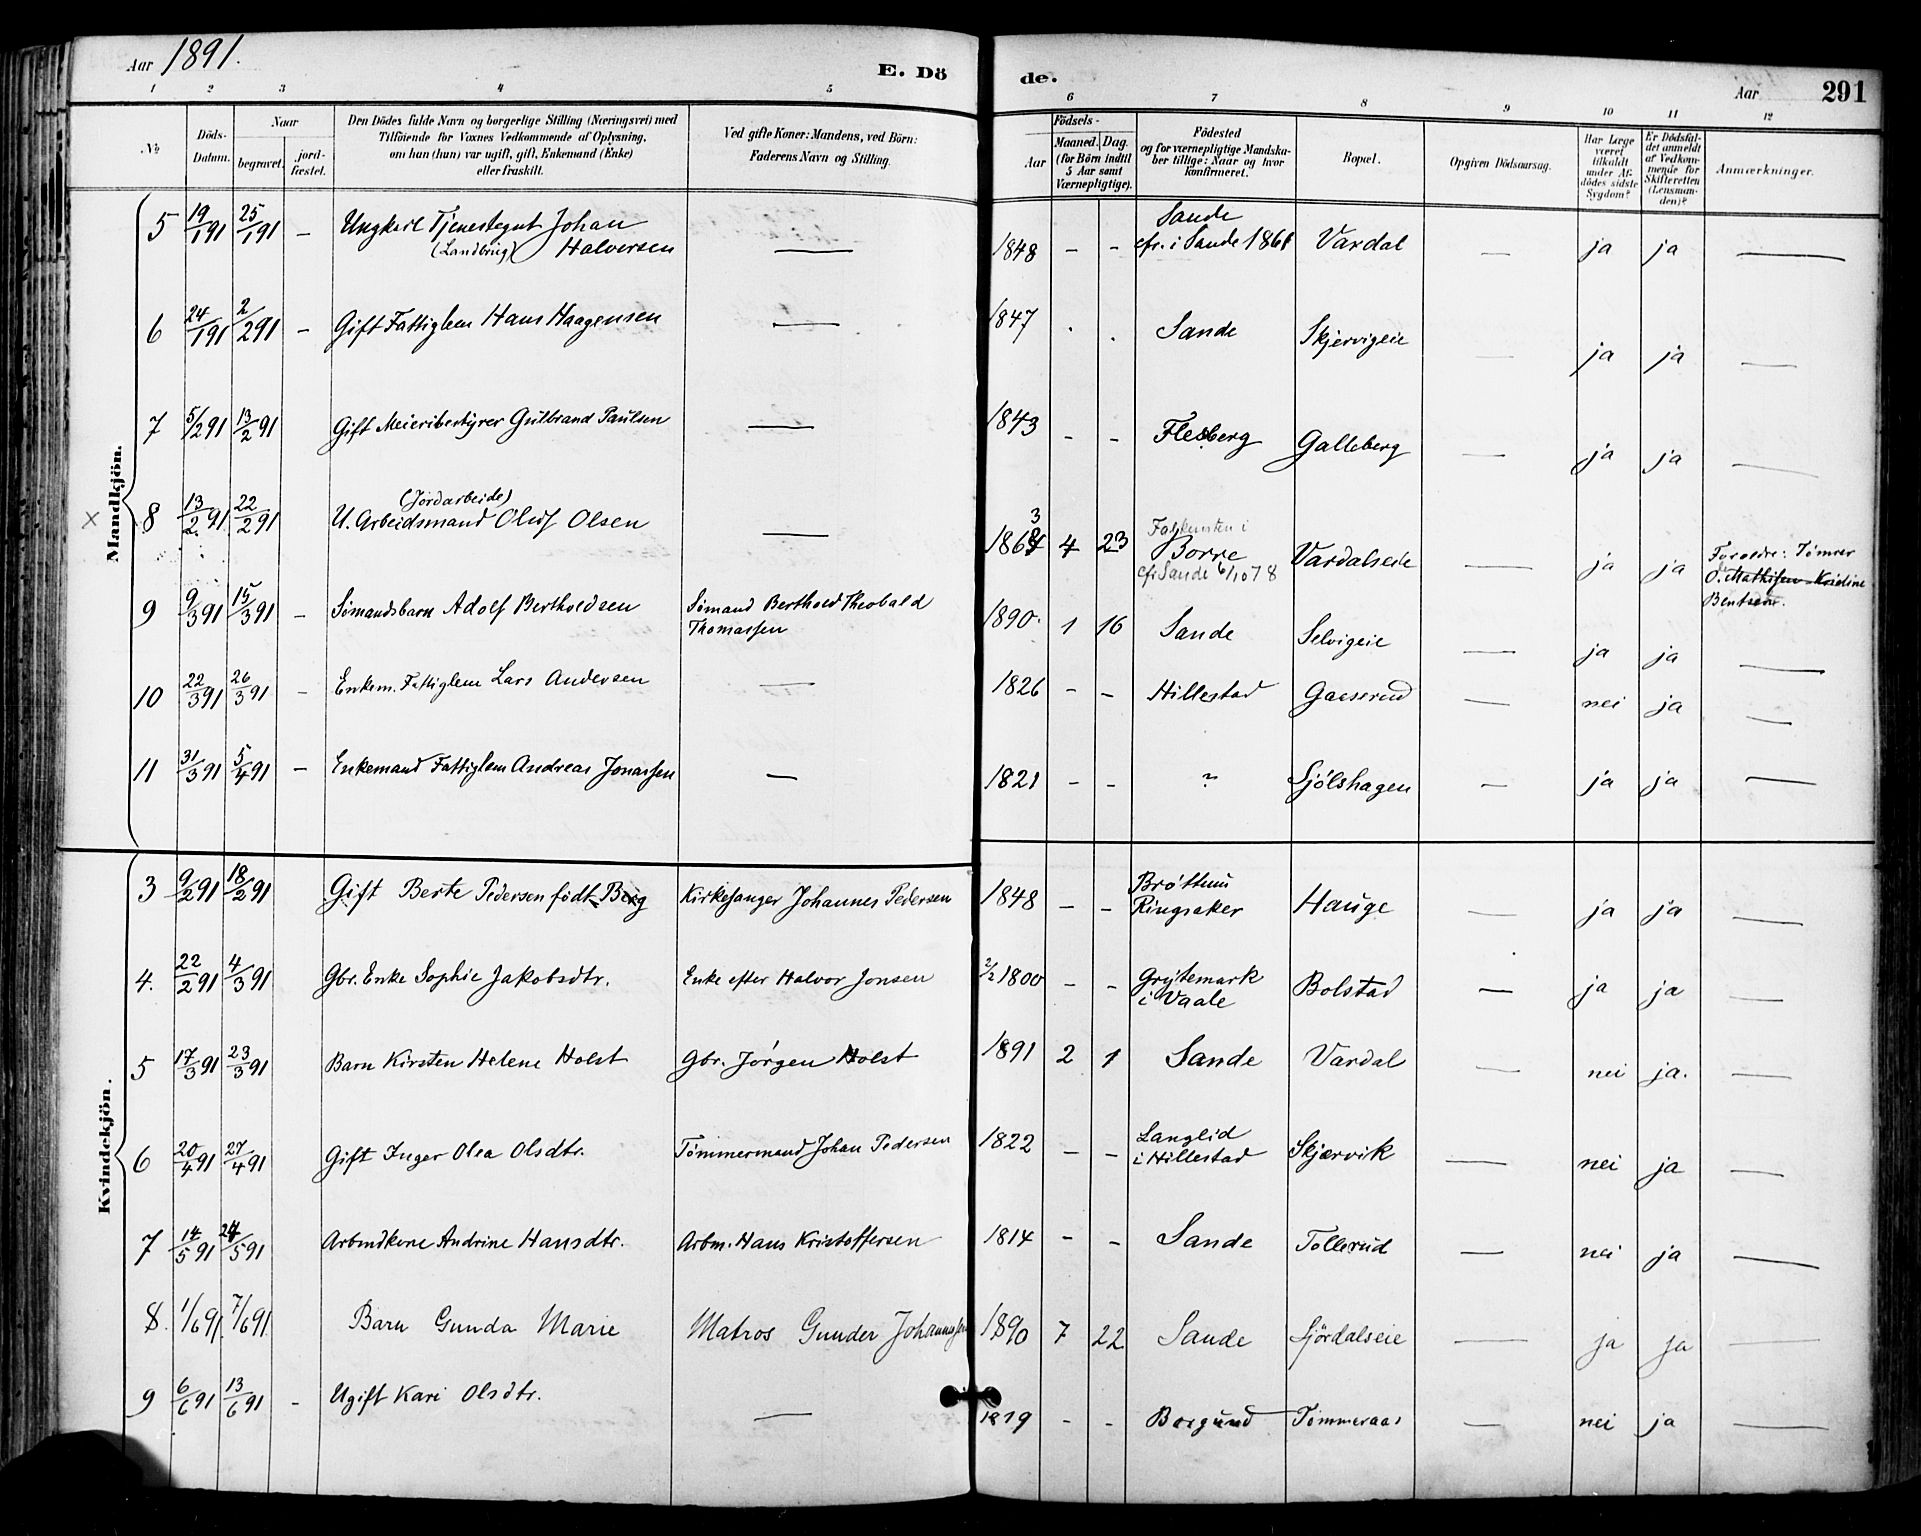 Aar 1891.
E. Dö
de.
Aar
291
1 2 3 4 5 6 7 8 9 10 11 12
No
Döds-
Datum.
Naar
begravet.
jord-
fæstet.
Den Dödes fulde Navn og borgerlige Stilling (Næringsvei) med
Tilföiende for Voxnes Vedkommende af Oplysning,
om han (hun) var ugift, gift, Enkemand (Enke)
eller fraskilt.
Ved gifte Koner: Mandens, ved Börn:
Faderens Navn og Stilling.
Födsels-
Aar
Maaned.
Dag.
(for Börn indtil
5 Aar samt
Værnepligtige).
Födested
og for værnepligtige Mandska-
ber tillige: Naar og hvor
konfirmeret.
Bopæl.
Opgiven Dödsaarsag.
Har Læge
været
tilkaldt
under Af-
dödes sidste
Sygdom?
Er Dödsfal-
det anmeldt
af Vedkom-
mende for
Skifteretten
(Lensman-
den)?
Anmærkninger.
Mandkjön.
5 19/1 91 25/1 91 – Ungkarl Tjenestegut Johan
(Landbrug) Halvorsen — 1848 – – Sande
cfr. i Sande 1861 Vardal — ja ja —
6 24/1 91 2/2 91 – Gift Fattiglem Hans Haagensen — 1847 . . Sande Skjervigeie — ja ja —
7 5/2 91 13/2 91 Gift Meieribestyrer Gulbrand Paulsen — 1843 – – Flesberg Galleberg — ja ja —
x 8 13/2 91 22/2 91 (Jordarbeide)
U. Arbeidsmand Oluf Olsen — 186 3 4 23 i
Borre
cfr Sande 6/10 78 Vardalseie — ja ja Foreldre: Tømrer
O. Mathisen Kristine
Bentsen.
9 9/3 91 15/3 91 – Sømandsbarn Adolf Bertholdsen Sømand Berthold Theobald
Thomassen 1890. 1 16 Sande Selvigeie — ja ja —
10 22/3 91 26/3 91 – Enkem. Fattiglem Lars Andersen — 1826 – – Hillestad Gaaserud — nei ja —
11 31/3 91 5/4 91 – Enkemand Fattiglem Andreas Jonassen — 1821 – – ? Sjølshagen — ja ja —
Kvindekjön.
3 9/2 91 18/2 91 Gift Berte Pedersen født Berg Kirkesanger Johannes Pedersen 1848 – – Brøttum
Ringsaker Hauge — ja ja —
4. 22/2 91 4/3 91 Gbr. Enke Sophie Jakobsdtr. Enke efter Halvor Jonsen 2/2 1800 – – Grytemark
i Vaale Bolstad — ja ja —
5 17/3 91 23/3 91 Barn Kirsten Helene Holst Gbr. Jørgen Holst 1891 2 1 Sande Vardal — nei ja. —
6 20/4 91 27/4 91 Gift Inger Olea Olsdtr. Tømmermand Johan Pedersen 1822 – – Langlid
i Hillestad Skjærvik — nei ja —
7 14/5 91 24/5 91 Arbmdkone Andrine Hansdtr. Arbm. Hans Kristoffersen 1814 – – Sande Tollerud — nei ja —
8. 1/6 91. 7/6 91. Barn Gunda Marie Matros Gunder Johannessen 1890 7 22 Sande Sjördalseie — ja ja —
9 6/6 91 13/6 91 – Ugift Kari Olsdtr. — 1819 – – Borgund Tømmeraas — nei ja —